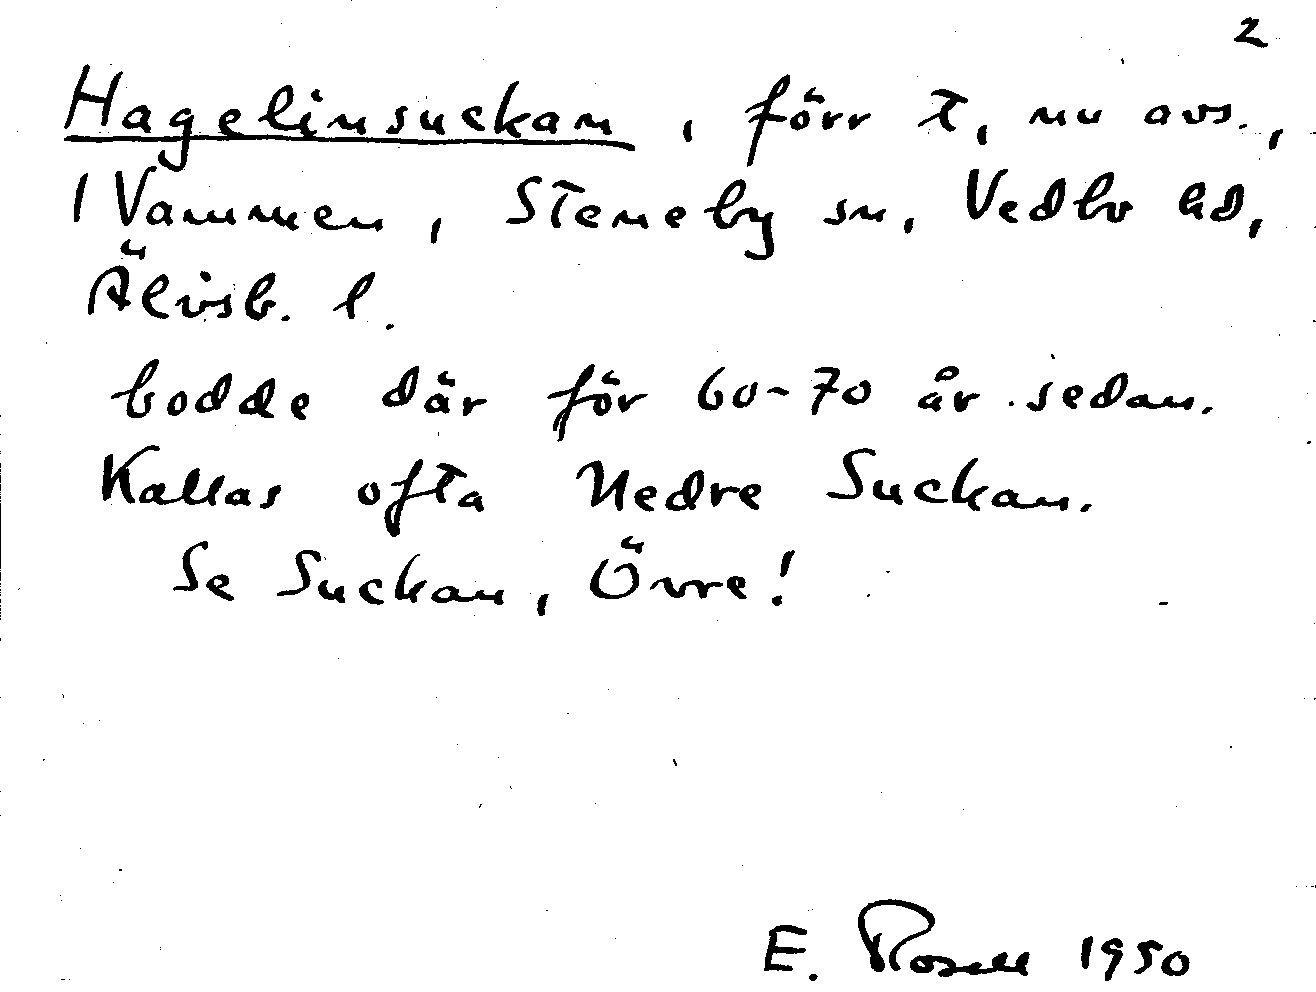 2
Hagelinsuckan, förr t, nu avs.,
1 Vammen, Steneby sn, Vedbo hd,
Älvsb. l.
bodde där för 60-70 år sedan.
Kallas ofta Nedre Suckan.
Se Suckan, Övre!
E. Rosell 1950